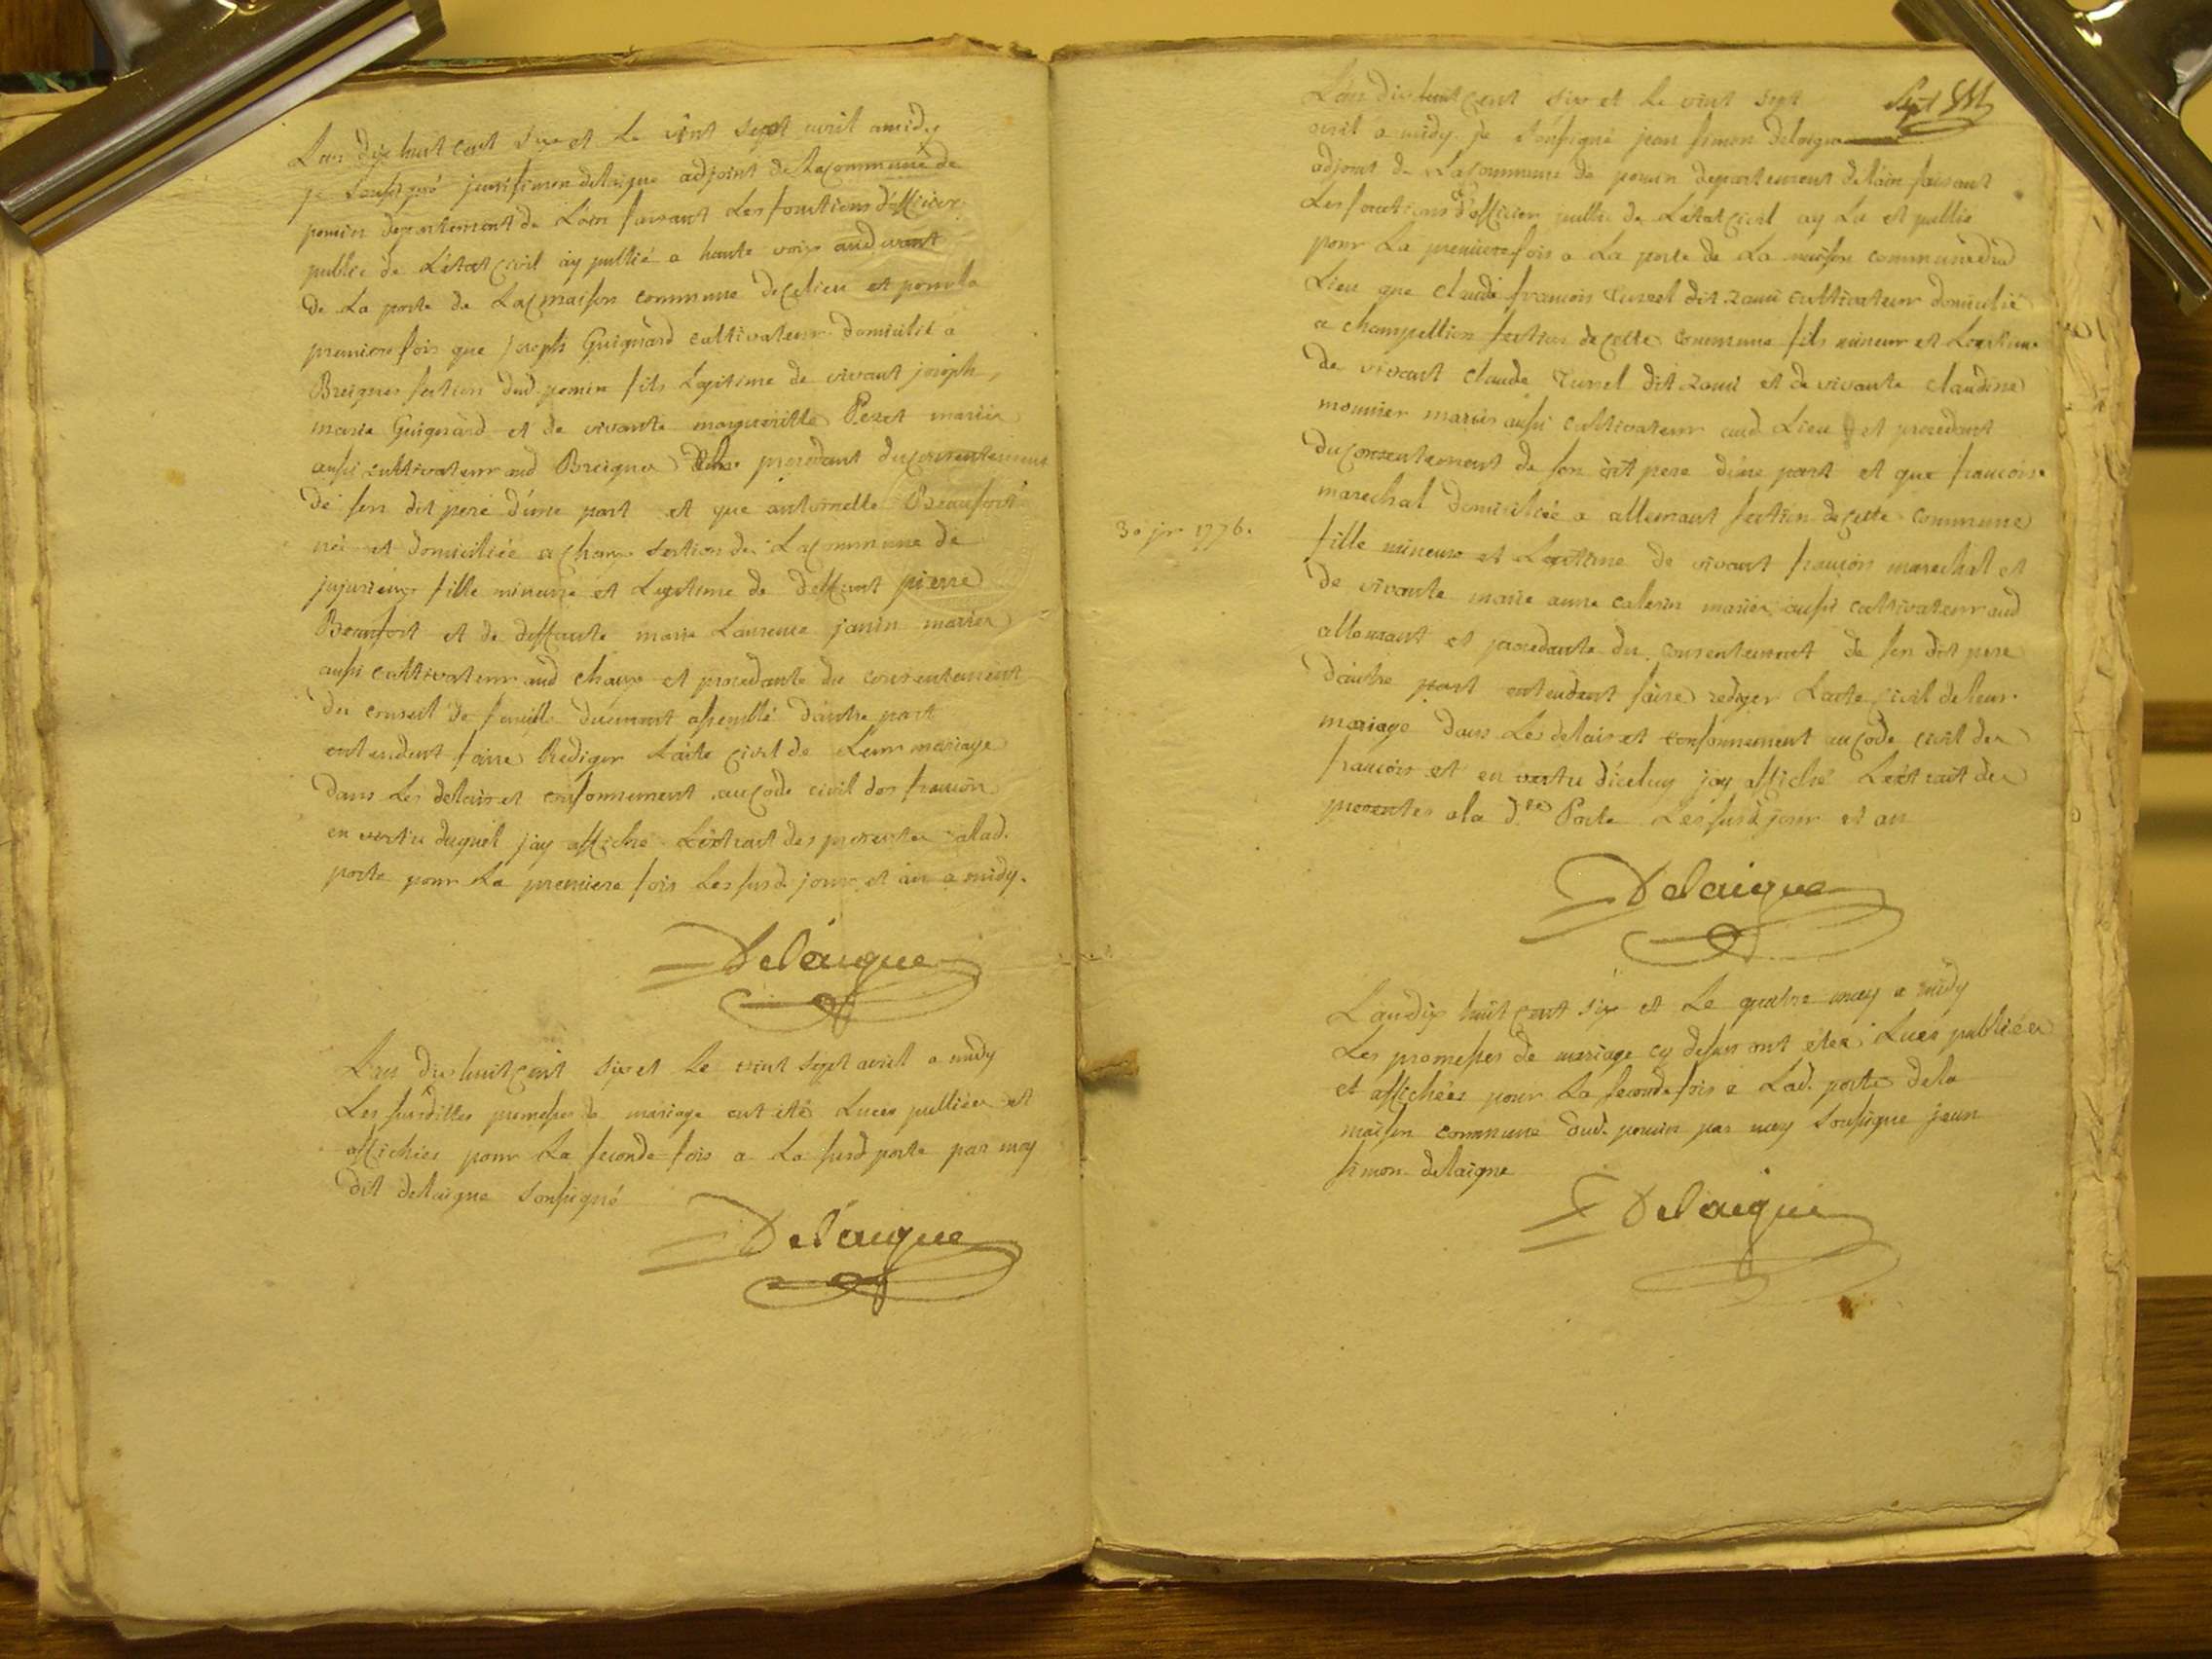 Lan dix huit cent six et Le vint sept avril a midy
je Soussigné jean simon delaigue adjoint de La commune de
poncin departement de Lain faisant Les fonctions d'officier
public de Létat civil ay publié a haute voix audevant
de La porte de La maison commune de ce lieu et pour la
premiere fois que joseph Guignard cultivateur domicilié a
Breignes section dud. poncin fils Legitime de vivant joseph
marie Guignard et de vivante margueritte Peret mariés
aussi cultivateurs aud Breignes procedant du consentement
de son dit pere d'une part et que antoinette Beaufort
née et domiciliée a chaux section de La commune de
jujurieux fille mineure et Legitime de deffunt pierre
Beaufort et de deffunte marie Laurence janin mariés
aussi cultivateurs aud chaux et procedante du consentement
du conseil de famille duement assemblé d'autre part
entendent faire Rediger Lacte civil de Leur mariage
dans Les delais et conformement au code civil des francois
en vertu duquel jay affiché Lextrait des presentes a lad.
porte pour La premiere fois Les susd. jour et an a midy.
Delaigue
Lan dix huit cent six et le vint sept avril a midy
Les susdittes promesses de mariage ont été Lues publiées et
affichées pour La seconde fois a La susd porte par moy
dit delaigue soussigné
Delaigue
Lan dix huit cent six et le vint sept
avril a midy je Soussigné jean simon delaigue
adjoint de La commune de poncin departement de lain faisant
Les fonctions d'officier public de Létat civil ay Lu et publié
pour La premiere fois a La porte de La maison commune dud
Lieu que claude francois Turrel dit zani cultivateur domicilié
a champeillon section de cette commune fils mineur et Legitime
de vivant claude Turrel dit zani et de vivante claudine
monnier mariés aussi cultivateurs aud Lieu et procedant
du consentement de son dit pere d'une part et que francoise
marechal domiciliée a allemant section de cette commune
30 jr 1776.
fille mineure et Legitime de vivant francois marechal et
de vivante marie anne mariés aussi cultivateurs aud
allemant et procedante du consentement de son dit pere
d'autre part entendent faire rediger Lacte civil de leur
mariage dans Les delais et conformement au code civil des
francois et en vertu d'iceluy jay affiché Lextrait des
presentes a la d.te Porte Les susd. jour et an
Delaigue
Lan dix huit cent six et Le quatre may a midy
Les promesses de mariage cy dessus ont étés Lues publiées
et affichées pour La seconde fois a Lad. porte de la
maison commune dud. poncin par moy Soussigne jean
simon delaigue
Delaigue